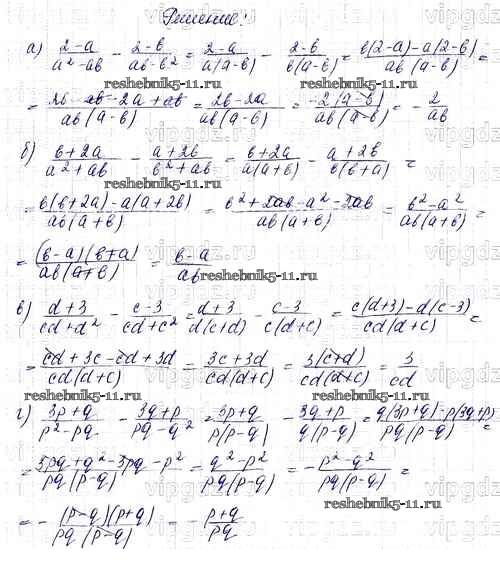 Решение:
а) (2-a)/(a²-ab) - (2-b)/(ab-b²) = (2-a)/(a(a-b)) - (2-b)/(b(a-b)) = (b(2-a)-a(2-b))/(ab(a-b)) =
reshebnik5-11.ru
= (2b-ab-2a+ab)/(ab(a-b)) = (2b-2a)/(ab(a-b)) = (-2(a-b))/(ab(a-b)) = -2/(ab)
б) (b+2a)/(a²+ab) - (a+2b)/(b²+ab) = (b+2a)/(a(a+b)) - (a+2b)/(b(b+a)) =
reshebnik5-11.ru
= (b(b+2a)-a(a+2b))/(ab(a+b)) = (b²+2ab-a²-2ab)/(ab(a+b)) = (b²-a²)/(ab(a+b)) =
= ((b-a)(b+a))/(ab(a+b)) = (b-a)/(ab)
reshebnik5-11.ru
в) (d+3)/(cd+d²) - (c-3)/(cd+c²) = (d+3)/(d(c+d)) - (c-3)/(c(d+c)) = (c(d+3)-d(c-3))/(cd(d+c)) =
= (cd+3c-cd+3d)/(cd(d+c)) = (3c+3d)/(cd(d+c)) = (3(c+d))/(cd(d+c)) = 3/(cd)
reshebnik5-11.ru
г) (3p+q)/(p²-pq) - (3q+p)/(pq-q²) = (3p+q)/(p(p-q)) - (3q+p)/(q(p-q)) = (q(3p+q)-p(3q+p))/(pq(p-q)) =
= (3pq+q²-3pq-p²)/(pq(p-q)) = (q²-p²)/(pq(p-q)) = -(p²-q²)/(pq(p-q)) =
reshebnik5-11.ru
= -((p-q)(p+q))/(pq(p-q)) - (p+q)/(pq)
reshebnik5-11.ru
vipgdz.ru